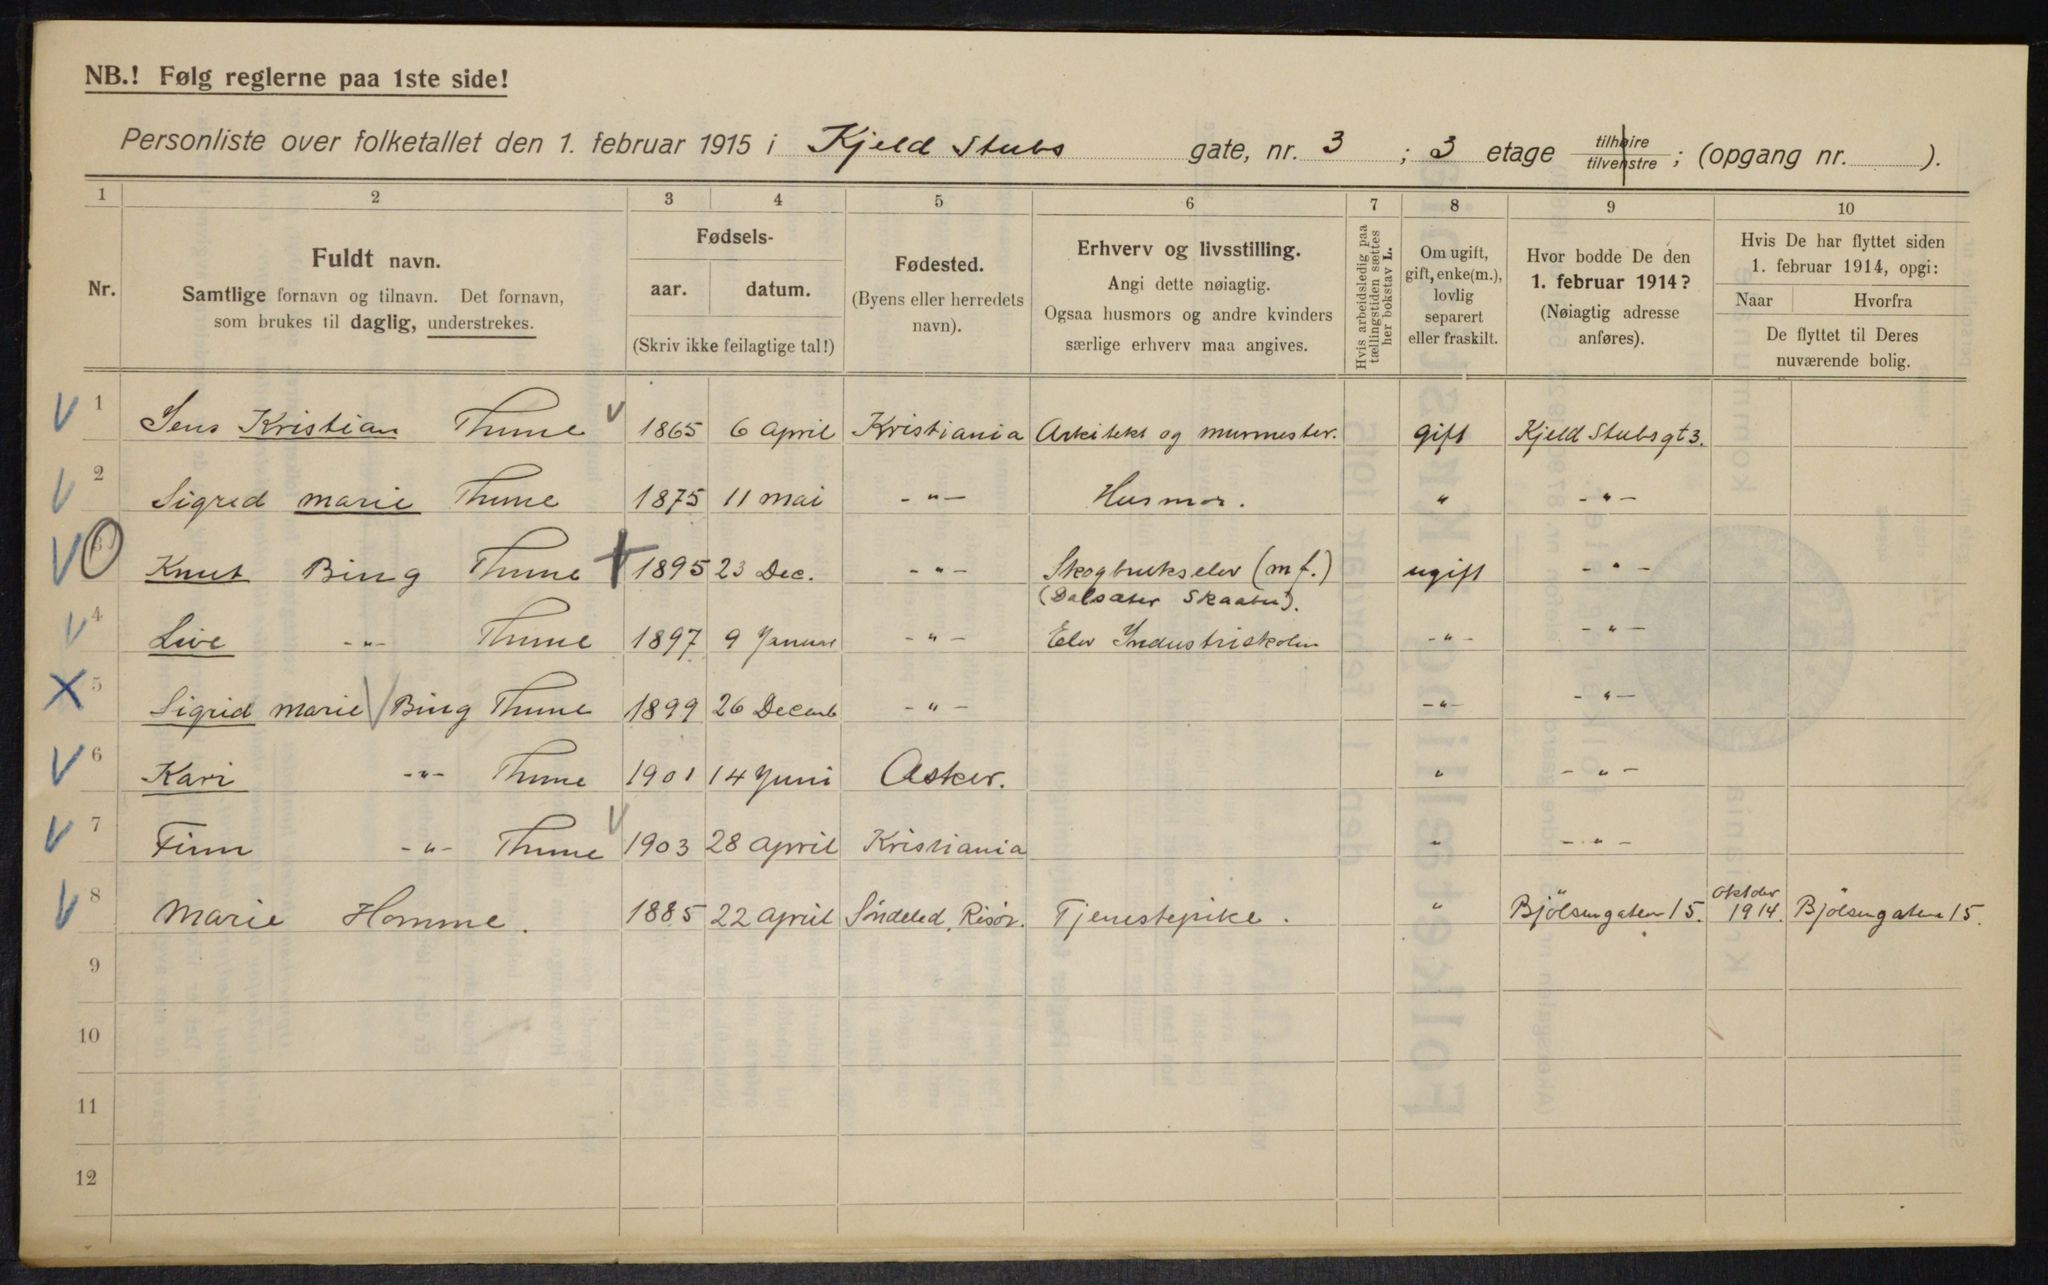 NB.! Følg reglerne paa 1ste side!
Personliste over folketallet den 1. februar 1915 i Kjeld Stubs gate, nr. 3 ; 3 etage tilhøire / tilvenstre ; (opgang nr. ).
1 2 3 4 5 6 7 8 9 10
Nr.
Fuldt navn.
Samtlige fornavn og tilnavn. Det fornavn,
som brukes til daglig, understrekes.
Fødsels-
aar. datum.
(Skriv ikke feilagtige tal!)
Fødested.
(Byens eller herredets
navn).
Erhverv og livsstilling.
Angi dette nøiagtig.
Ogsaa husmors og andre kvinders
særlige erhverv maa angives.
Hvis arbeidsledig paa
tællingstiden sættes
her bokstav L.
Om ugift,
gift, enke(m.),
lovlig
separert
eller fraskilt.
Hvor bodde De den
1. februar 1914?
(Nøiagtig adresse
anføres).
Hvis De har flyttet siden
1. februar 1914, opgi:
Naar Hvorfra
De flyttet til Deres
nuværende bolig.
1 Jens Kristian Thume 1865 6 april Kristiania Arkitekt og murmester. gift Kjeld Stubsgt 3.
2 Sigrid Marie Thume 1875 11 mai -"- Husmor. " -"-
3 Knut Bing Thume 1895 23 Dec. -"- Skogbrukselev (m f.) ugift -"-
(Dalsæter Skaabu).
4 Live -"- Thume 1897 9 Januar -"- Elev Industriskolen -"- -"-
5 Sigrid Marie Bing Thume 1899 26 Decemb -"- -"- -"-
6 Kari -"- Thume 1901 14 Juni Asker. " -"-
7 Finn -"- Thume 1903 28 april Kristiania " -"-
8 Marie Homme. 1885 22 april Söndeled, Risör. Tjenestepike. " Bjölsengaten 15. Oktober 1914. Bjölsengaten 15.
9
10
11
12